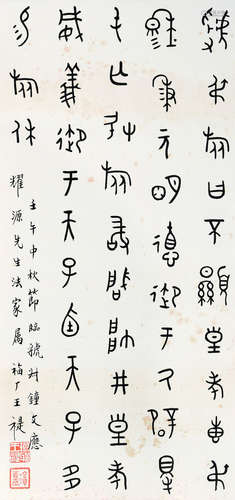 虢叔旅曰不顯皇考叀叔
穆秉元明德御于厥辟得
屯亡敃旅敢啟帥井皇考
威義御于天子卣天子多
易旅休
壬午中秋節臨虢叔鐘文應
耀源先生法家屬 福厂王禔